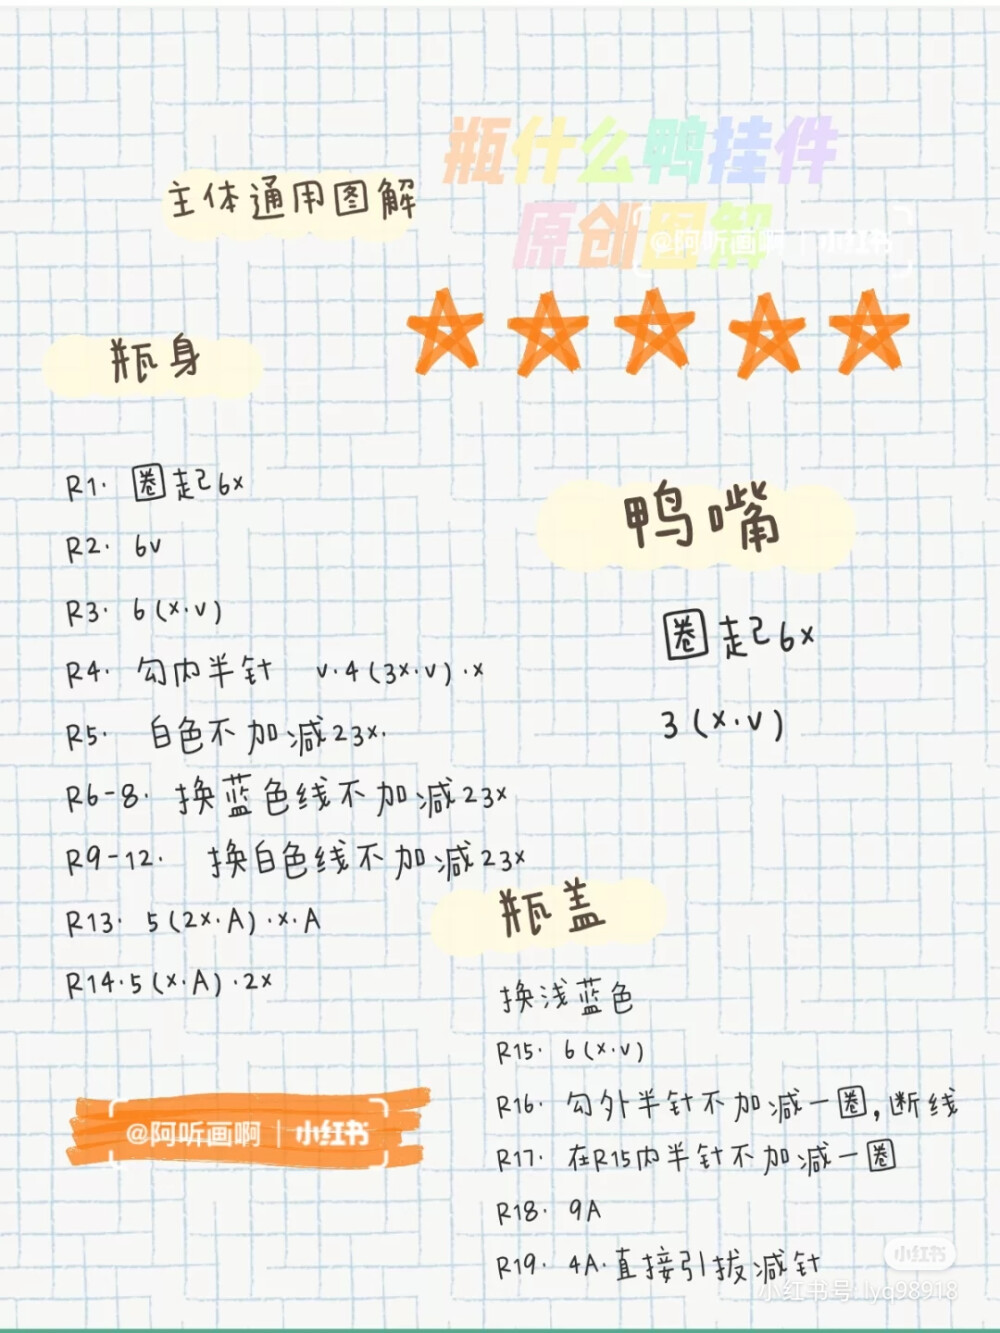 瓶什么鸭挂件
主体通用图解
原创图解
@阿听画啊 | 小红书
瓶身
R1. 圈起6x
R2. 6v
R3. 6(x.v)
R4. 勾内半针 v.4(3x.v).x
R5. 白色不加减23x.
R6-8. 换蓝色线不加减23x
R9-12. 换白色线不加减23x
R13. 5(2x.A).x.A
R14.5(x.A).2x
鸭嘴
圈起6x
3(x.v)
瓶盖
换浅蓝色
R15. 6(x.v)
R16. 勾外半针不加减一圈,断线
R17. 在R15内半针不加减一圈
R18. 9A
R19. 4A.直接引拔减针
@阿听画啊 | 小红书
小红书
小红书号:lyq98918